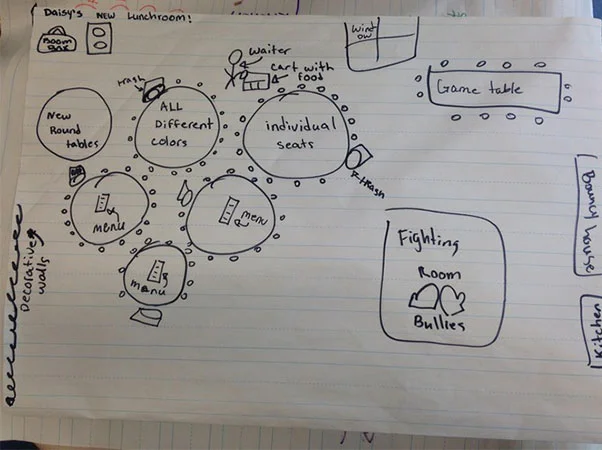 Daisy's NEW Lunchroom!
Boom
Box
waiter
cart with
food
Wind
ow
trash
Game table
New
Round
tables
ALL
Different
colors
individual
seats
trash
menu
menu
menu
Decorative
walls
Fighting
Room
Bullies
Bouncy house
Kitchen